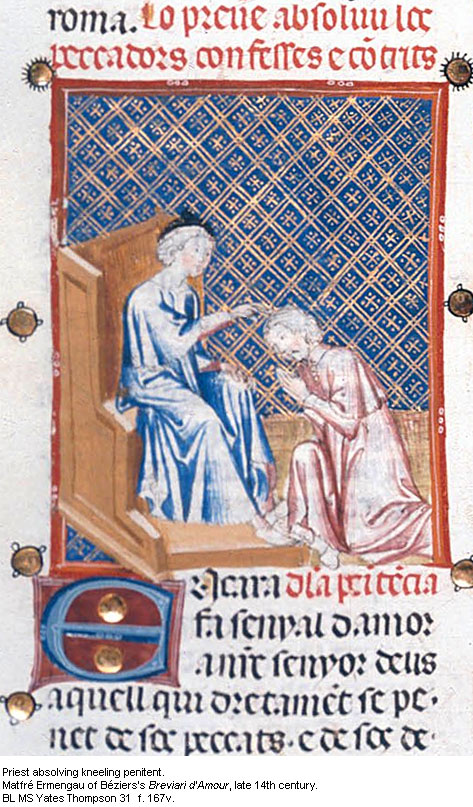 roma. Lo preue absoluu los
peccadors confesses e cõtrits
ENcara dla penitẽcia
fa senyal damor
a nr̃e senyor deus
aquell qui dretamẽt se pe·
net de sos peccats · e de sos de·
Priest absolving kneeling penitent.
Matfré Ermengau of Béziers's Breviari d'Amour, late 14th century.
BL MS Yates Thompson 31 f. 167v.